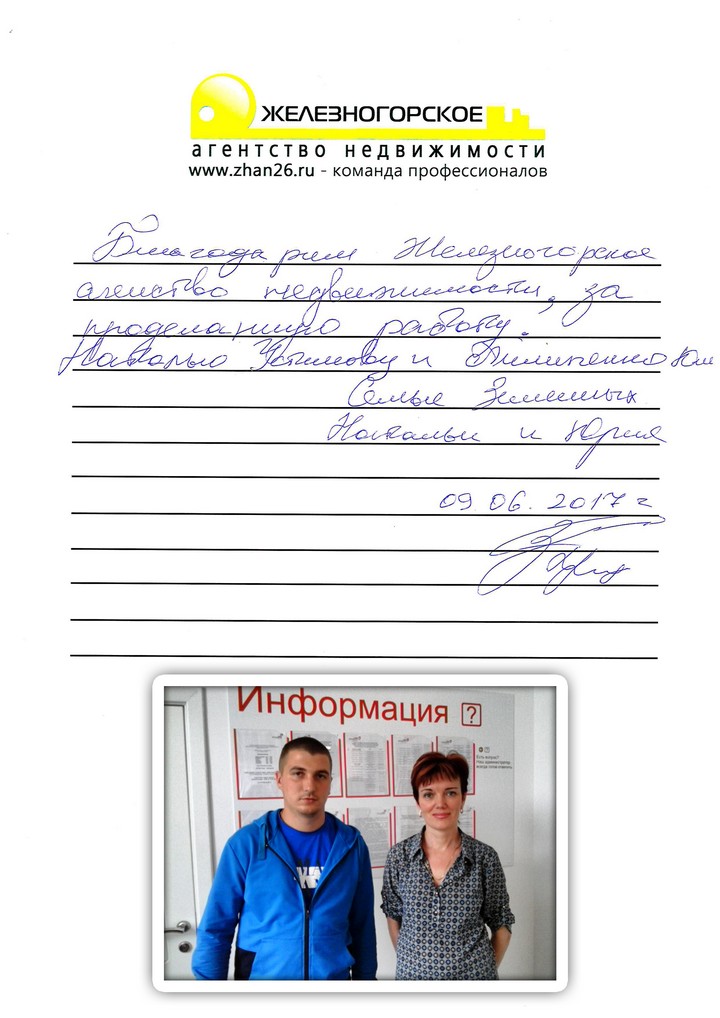 ЖЕЛЕЗНОГОРСКОЕ
агентство недвижимости
www.zhan26.ru - команда профессионалов
Благодарим Железногорское
агенство недвижимости, за
проделанную работу.
Наталью Устимову и Пилипенко Юли
Семья Зименных
Натальи и Юрия
09.06.2017 г
Информация ?
Есть вопрос?